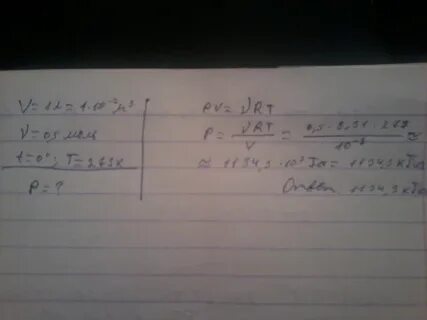 V = 1л = 1·10⁻³ м³
ν = 0,5 моль
t = 0°; T = 273К
P = ?
PV = νRT
P = νRT/V = 0,5 · 8,31 · 273/10⁻³ ≈
≈ 1134,3 · 10³ Па = 1134,3 кПа
Ответ 1134,3 кПа